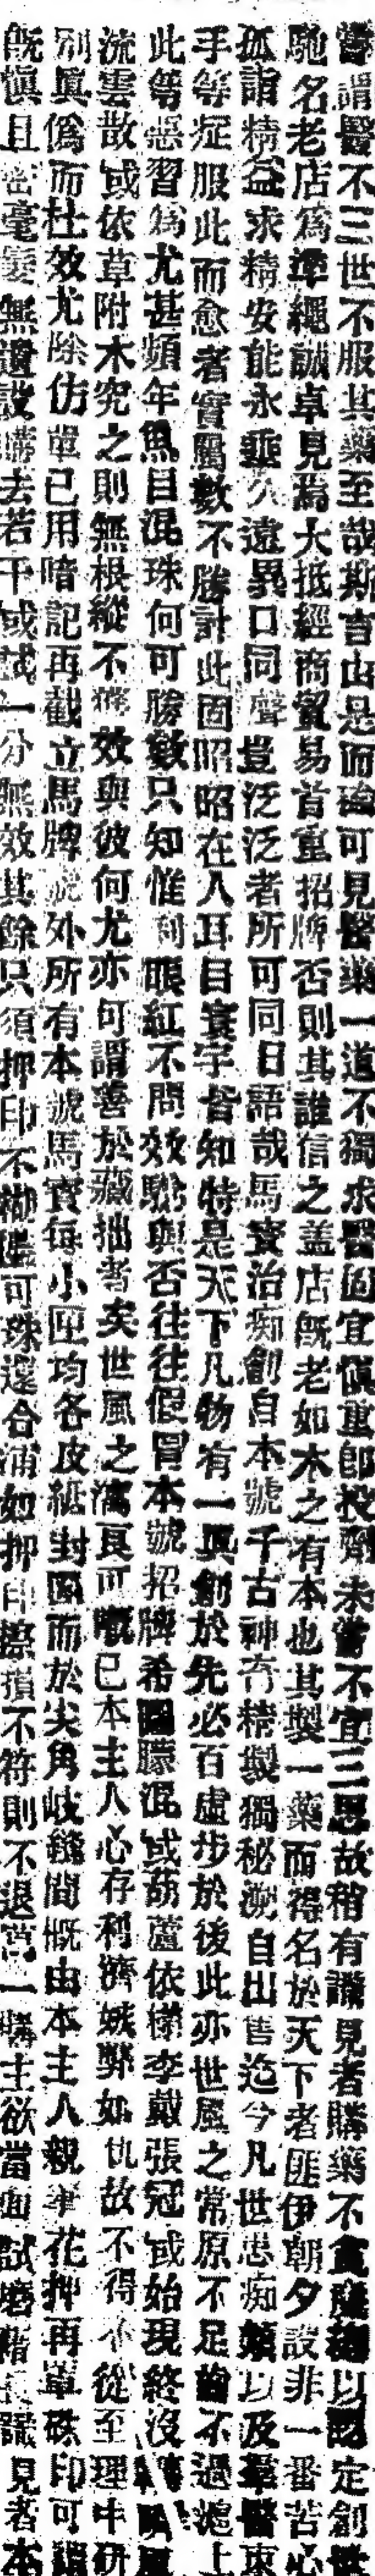 嘗謂醫不三世不服其藥至哉斯言由是而論可見醫藥一道不獨求醫固宜愼重卽投劑未嘗不宜三思故稍有識見者購藥不貪廉總以認定創
馳名老店爲準繩誠卓見焉大抵經商貿易首重招牌否則其誰信之盖店旣老如木之有本也其製一藥而得名於天下者匪伊朝夕設非一番苦心
孤詣精益求精安能永垂久遠異口同聲豈泛泛者所可同日語哉馬寳治痴創自本號千古神奇精製獨秘溯自出售迄今凡世患痴癲以及羣醫束
手等症服此而愈者實屬數不勝計此固昭昭在人耳目寰宇皆知特是天下凡物有一眞創於先必百虛步於後此亦世風之常原不足論不過滬上
此等惡習爲尤甚頻年魚目混珠何可勝數只知惟利眼紅不問效驗與否往往假冒本號招牌希圖朦混或葫蘆依樣李戴張冠或始現終沒
流雲散或依草附木究之則無根縱不獲效與彼何尤亦可謂善於藏拙者矣世風之澆眞可嘅已本主人心存利濟嫉弊如仇故不得不從至理中研
別眞僞而杜效尤除仿單已用暗記再截立馬牌號外所有本號馬寳每小匣均各皮紙封固而於尖角歧縫間槪由本主人親筆花押再葢硃印可謂
旣愼且密毫髮無遺設購去若干或試一分無效其餘只須押印不糊儘可珠還合浦如押印擦損不符則不退嘗一購主欲當面試磨藉長識見者本